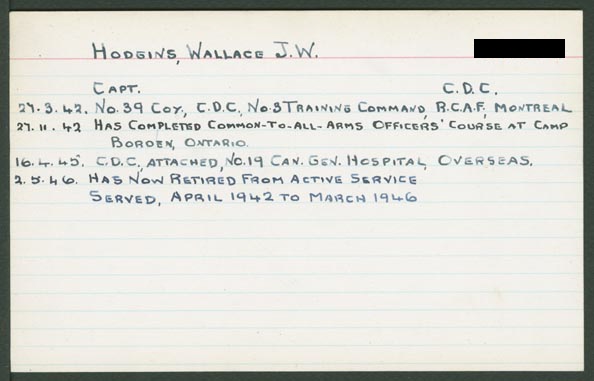 HODGINS, WALLACE J.W.
CAPT. C.D.C.
27.3.42. NO.39 COY, C.D.C, NO.3 TRAINING COMMAND, R.C.A.F, MONTREAL
27.11.42 HAS COMPLETED COMMON-TO-ALL-ARMS OFFICERS' COURSE AT CAMP
BORDEN, ONTARIO.
16.4.45. C.D.C, ATTACHED, NO.19 CAN. GEN. HOSPITAL, OVERSEAS.
2.5.46. HAS NOW RETIRED FROM ACTIVE SERVICE
SERVED, APRIL 1942 TO MARCH 1946